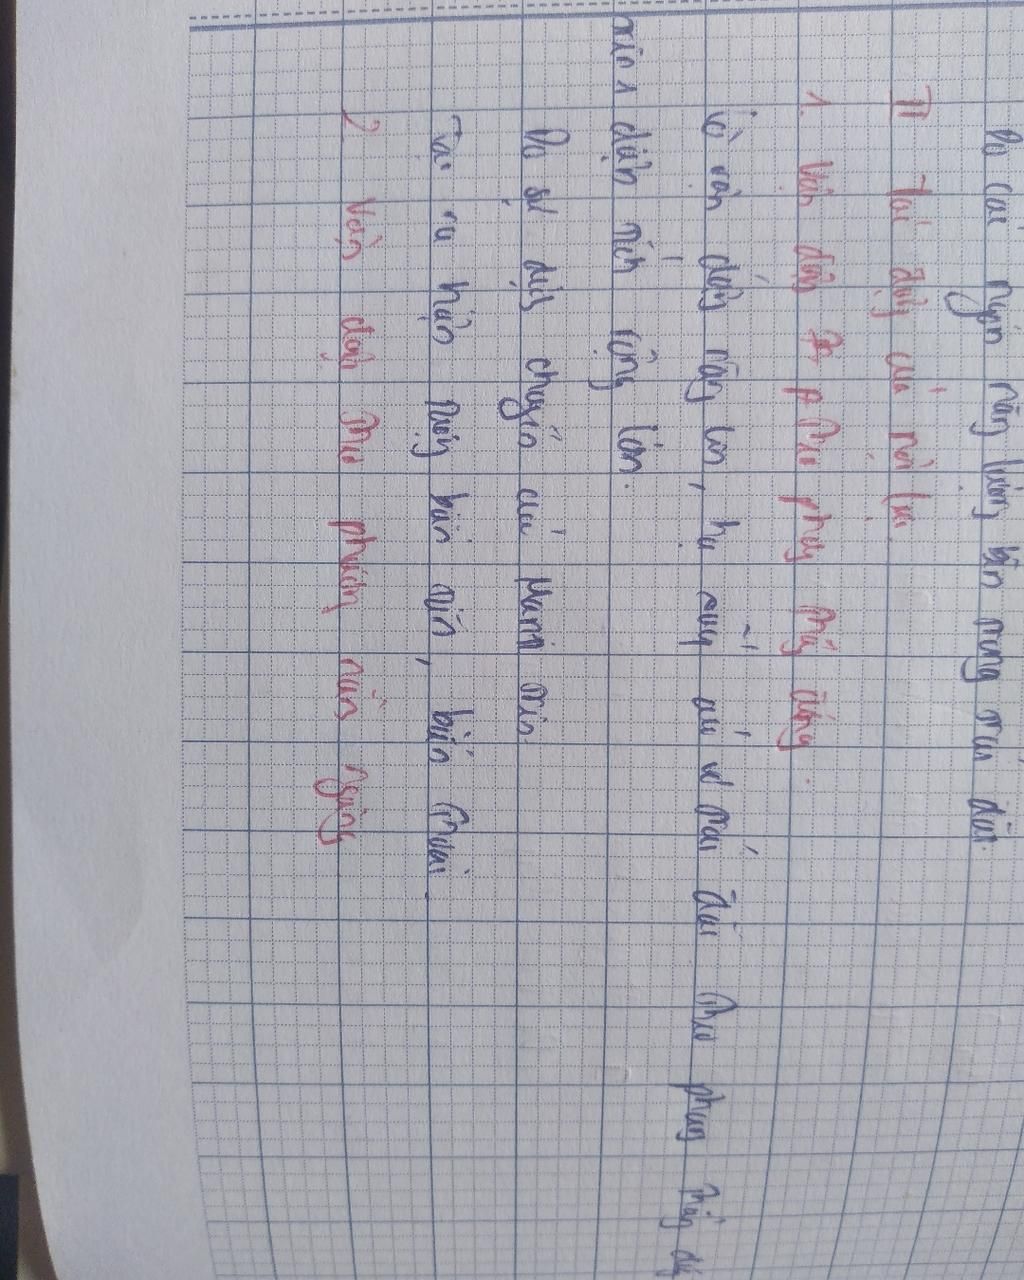 Do các nguồn năng lượng bên trong trái đất.
II Tác động của nội lực
1. Vận động theo phương thẳng đứng.
Là vận động nâng lên, hạ xuống của vỏ trái đất theo phương thẳng đứng
trên 1 diện tích rộng lớn.
Do sự dịch chuyển của Manti trên.
Tạo ra hiện tượng biển tiến, biển thoái.
2 Vận động theo phương nằm ngang